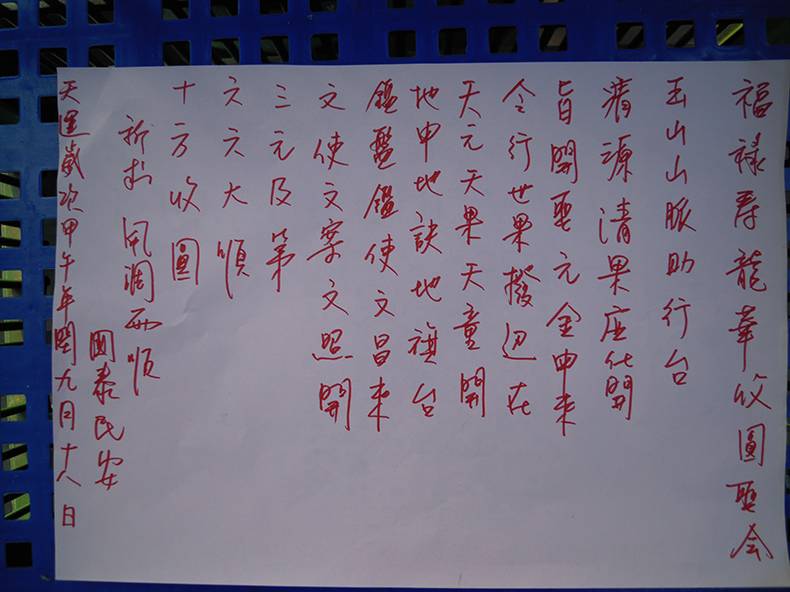 福祿壽龍華收圓聖会
玉山山脈助行台
清源清果座代開
旨開聖元金申來
令行世果撥迅在
天元天果天童開
地申地訣地旗台
鑑盤鑑使文昌來
文使文案文照開
三元及第
六六大順
十方收圓
祈求 風調雨順
國泰民安
天運歲次甲午年閏九月十八日